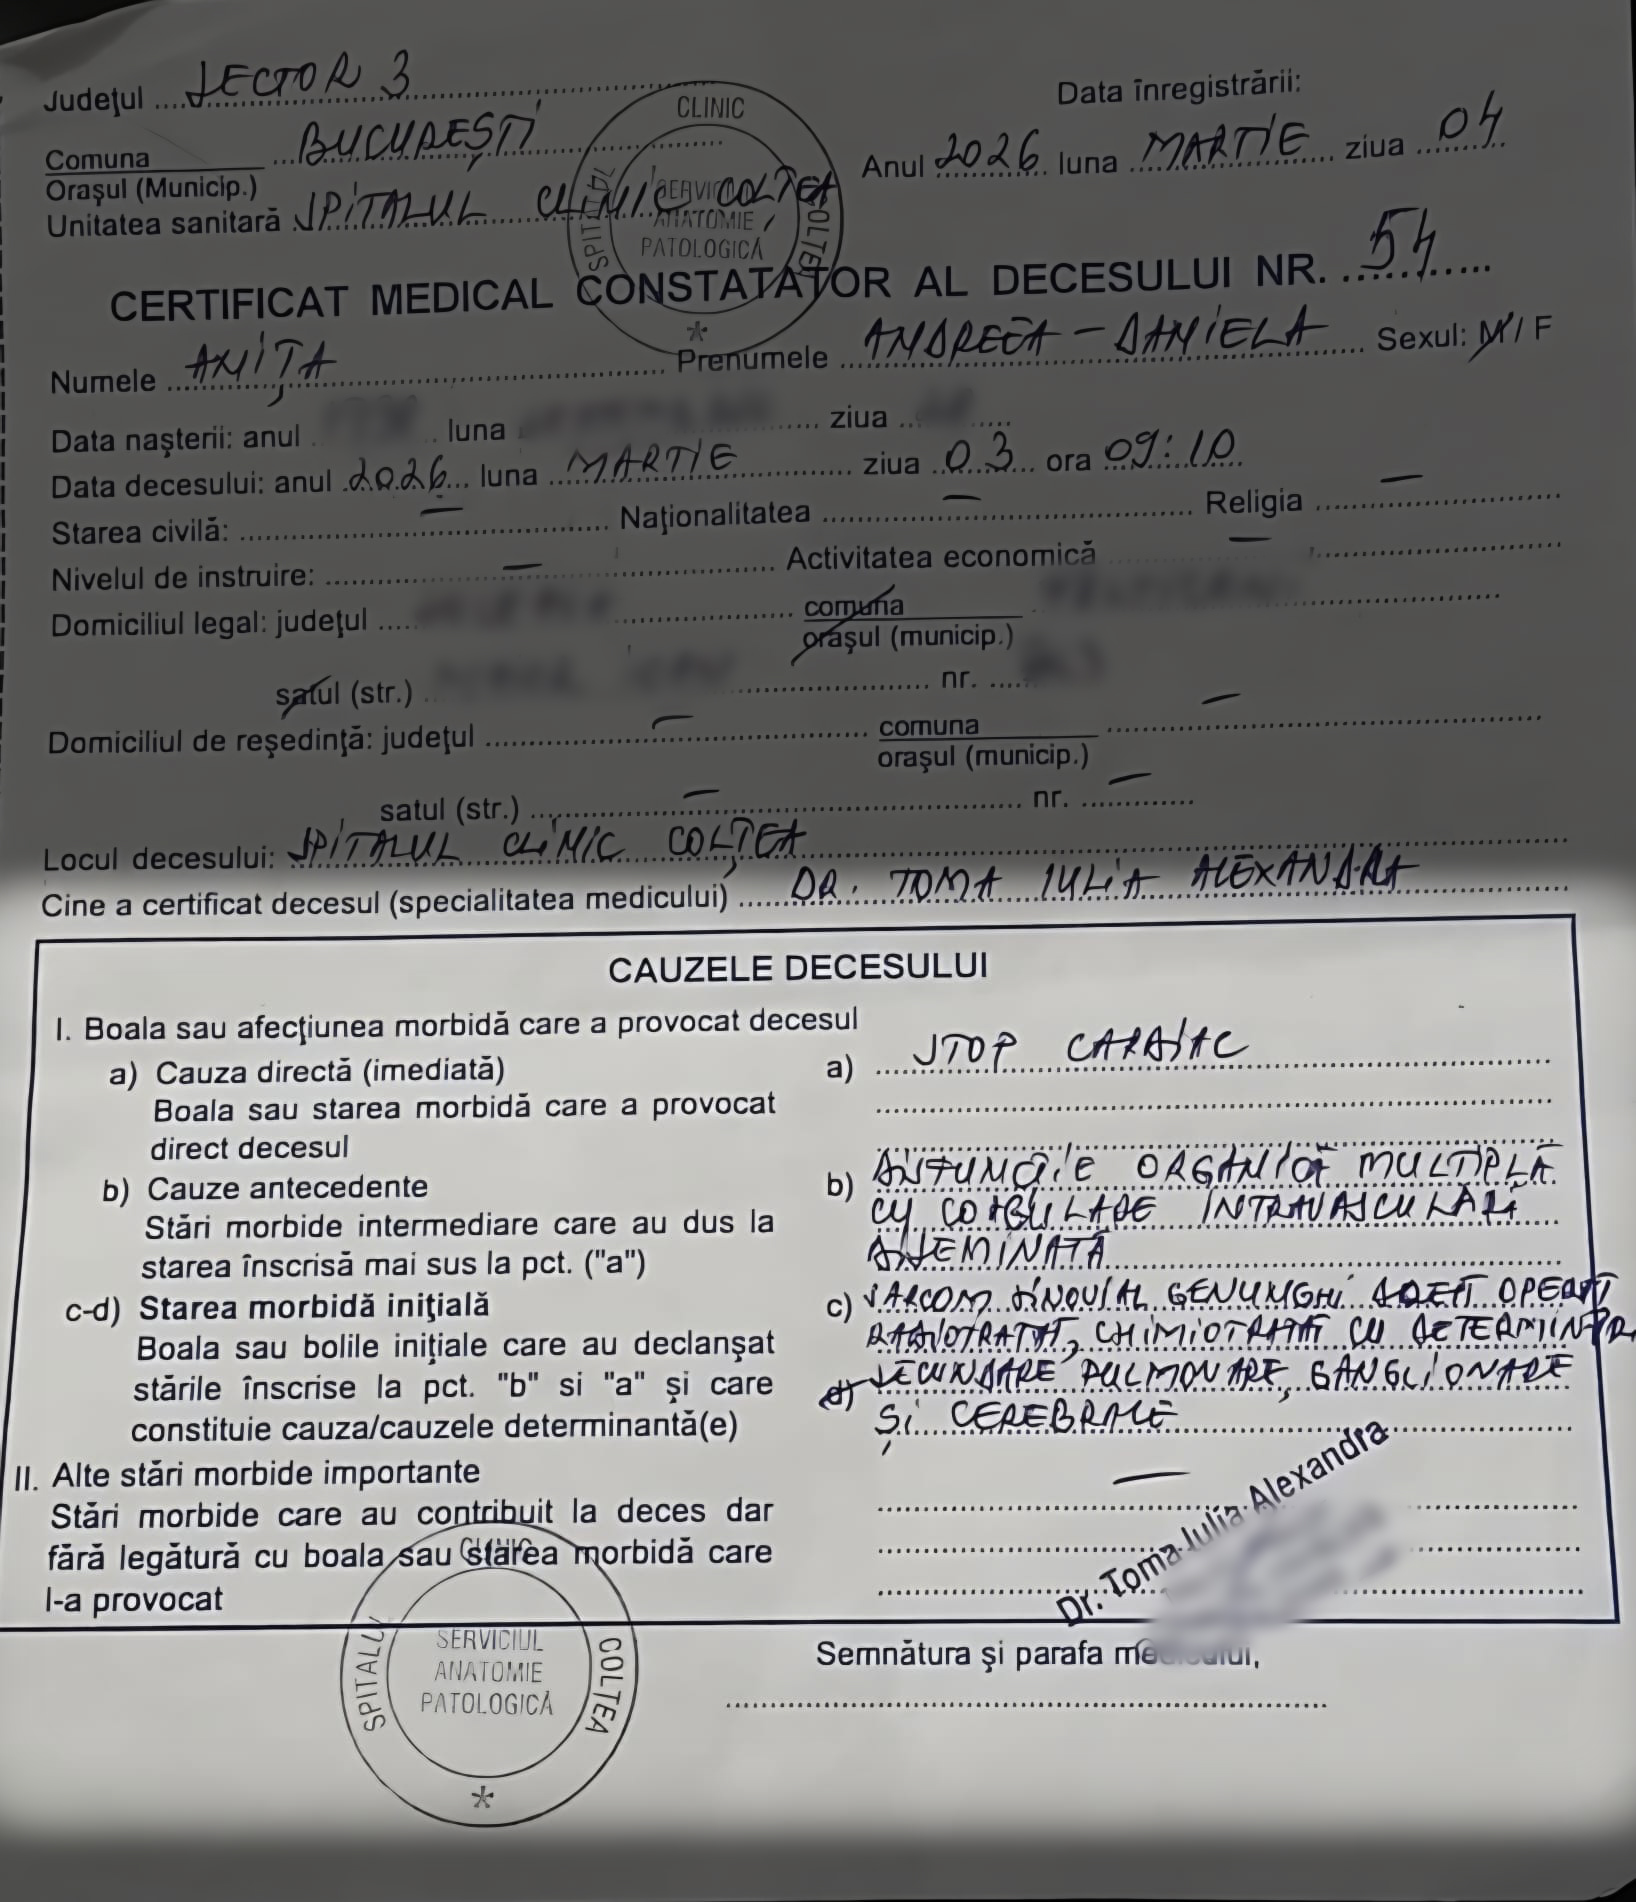 Judeţul SECTOR 3
Data înregistrării:
Comuna
Oraşul (Municip.) BUCUREȘTI
Anul 2026 luna MARTIE ziua 04
Unitatea sanitară SPITALUL CLINIC COLȚEA
SPITALUL CLINIC COLŢEA
SERVICIUL
ANATOMIE
PATOLOGICĂ
CERTIFICAT MEDICAL CONSTATATOR AL DECESULUI NR. 54
Numele ANIȚA Prenumele ANDREEA-DANIELA Sexul: M/F
Data naşterii: anul luna ziua
Data decesului: anul 2026 luna MARTIE ziua 03 ora 09:10
Starea civilă: — Naţionalitatea — Religia —
Nivelul de instruire: — Activitatea economică —
Domiciliul legal: judeţul comuna
oraşul (municip.)
satul (str.) nr.
Domiciliul de reşedinţă: judeţul — comuna —
oraşul (municip.)
satul (str.) — nr. —
Locul decesului: SPITALUL CLINIC COLȚEA
Cine a certificat decesul (specialitatea medicului) DR. TOMA IULIA ALEXANDRA
CAUZELE DECESULUI
I. Boala sau afecţiunea morbidă care a provocat decesul
a) Cauza directă (imediată) a) STOP CARDIAC
Boala sau starea morbidă care a provocat
direct decesul
b) Cauze antecedente b) DISFUNCȚIE ORGANICĂ MULTIPLĂ
Stări morbide intermediare care au dus la CU COAGULARE INTRAVASCULARĂ
starea înscrisă mai sus la pct. ("a") DISEMINATĂ
c-d) Starea morbidă iniţială c) SARCOM SINOVIAL GENUNCHI OPERAT
Boala sau bolile iniţiale care au declanşat RADIOTRATAT, CHIMIOTRATAT CU DETERMINĂRI
stările înscrise la pct. "b" si "a" şi care d) SECUNDARE PULMONARE, GANGLIONARE
constituie cauza/cauzele determinantă(e) ȘI CEREBRALE
II. Alte stări morbide importante —
Stări morbide care au contribuit la deces dar
fără legătură cu boala sau starea morbidă care
l-a provocat
Dr. Toma Iulia Alexandra
Semnătura şi parafa medicului,
SPITALUL CLINIC COLŢEA
SERVICIUL
ANATOMIE
PATOLOGICĂ